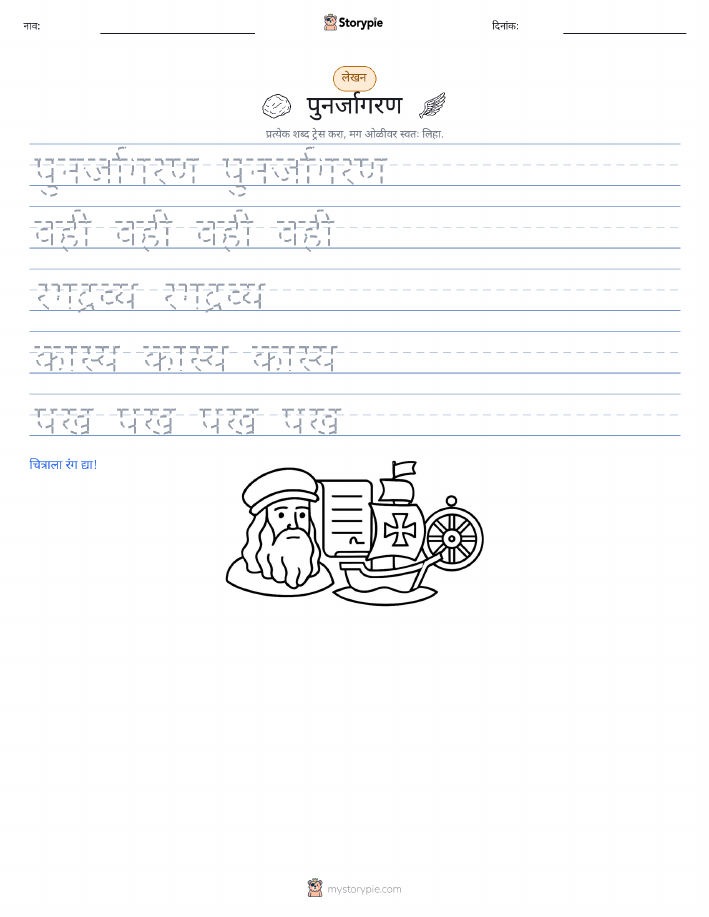 नाव:
Storypie
दिनांक:
लेखन
पुनर्जागरण
प्रत्येक शब्द ट्रेस करा, मग ओळीवर स्वतः लिहा.
पुनर्जागरण पुनर्जागरण
वही वही वही वही
रगद्रव्य रगद्रव्य
कास्य कास्य कास्य
पख पख पख पख
चित्राला रंग द्या!
mystorypie.com